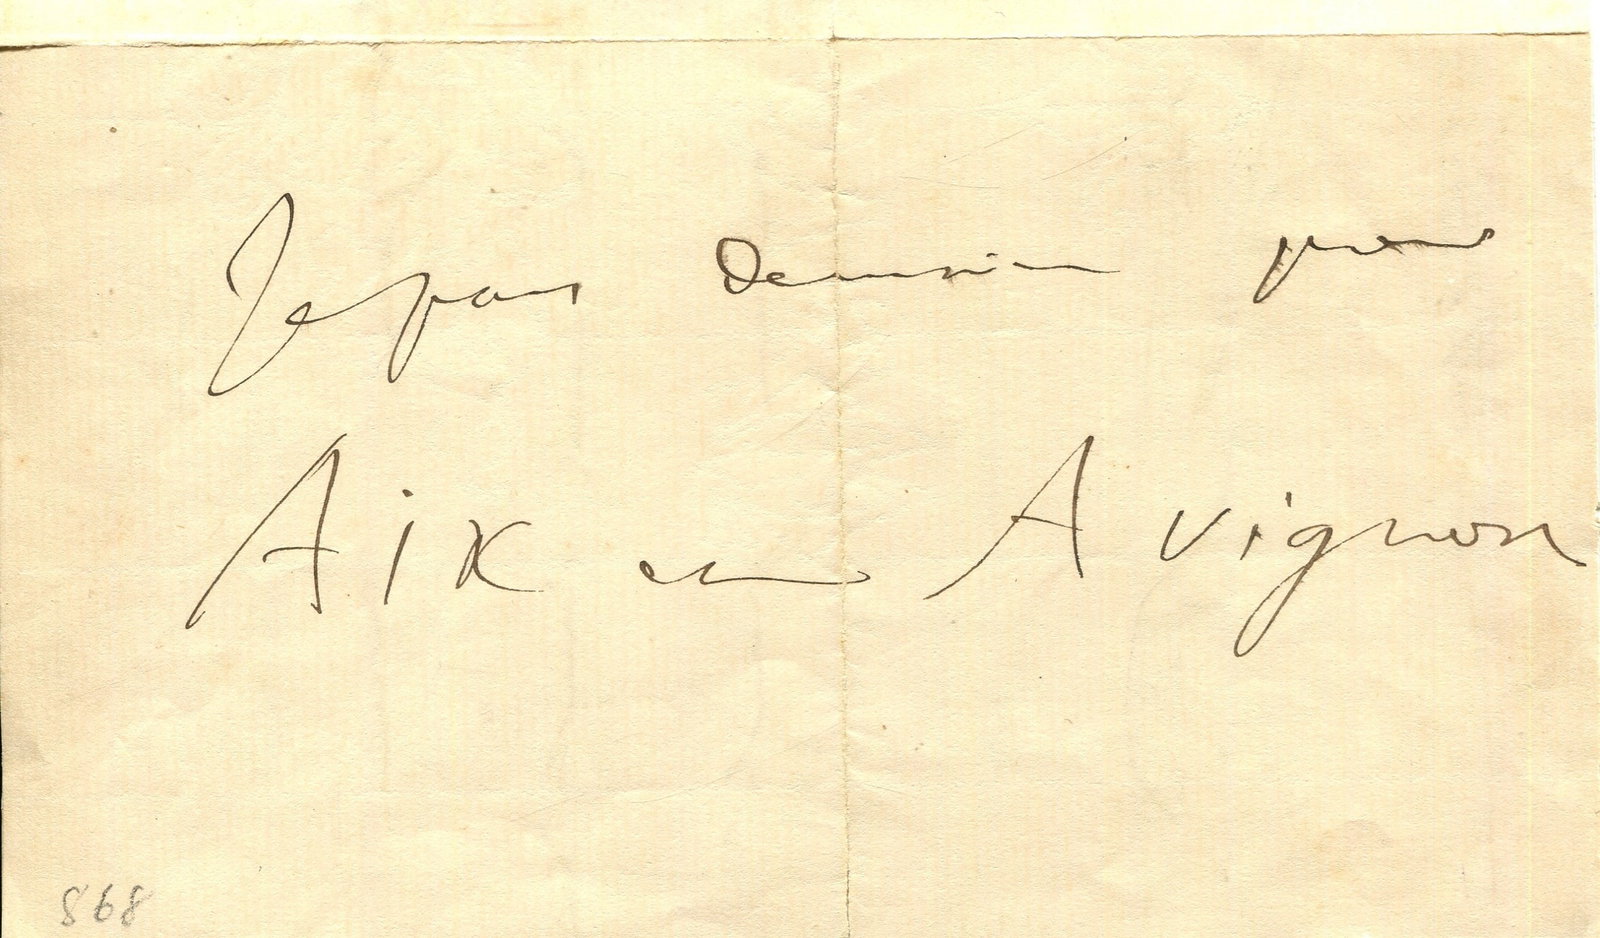 Je pars Demain pour
Aix en Avignon
868